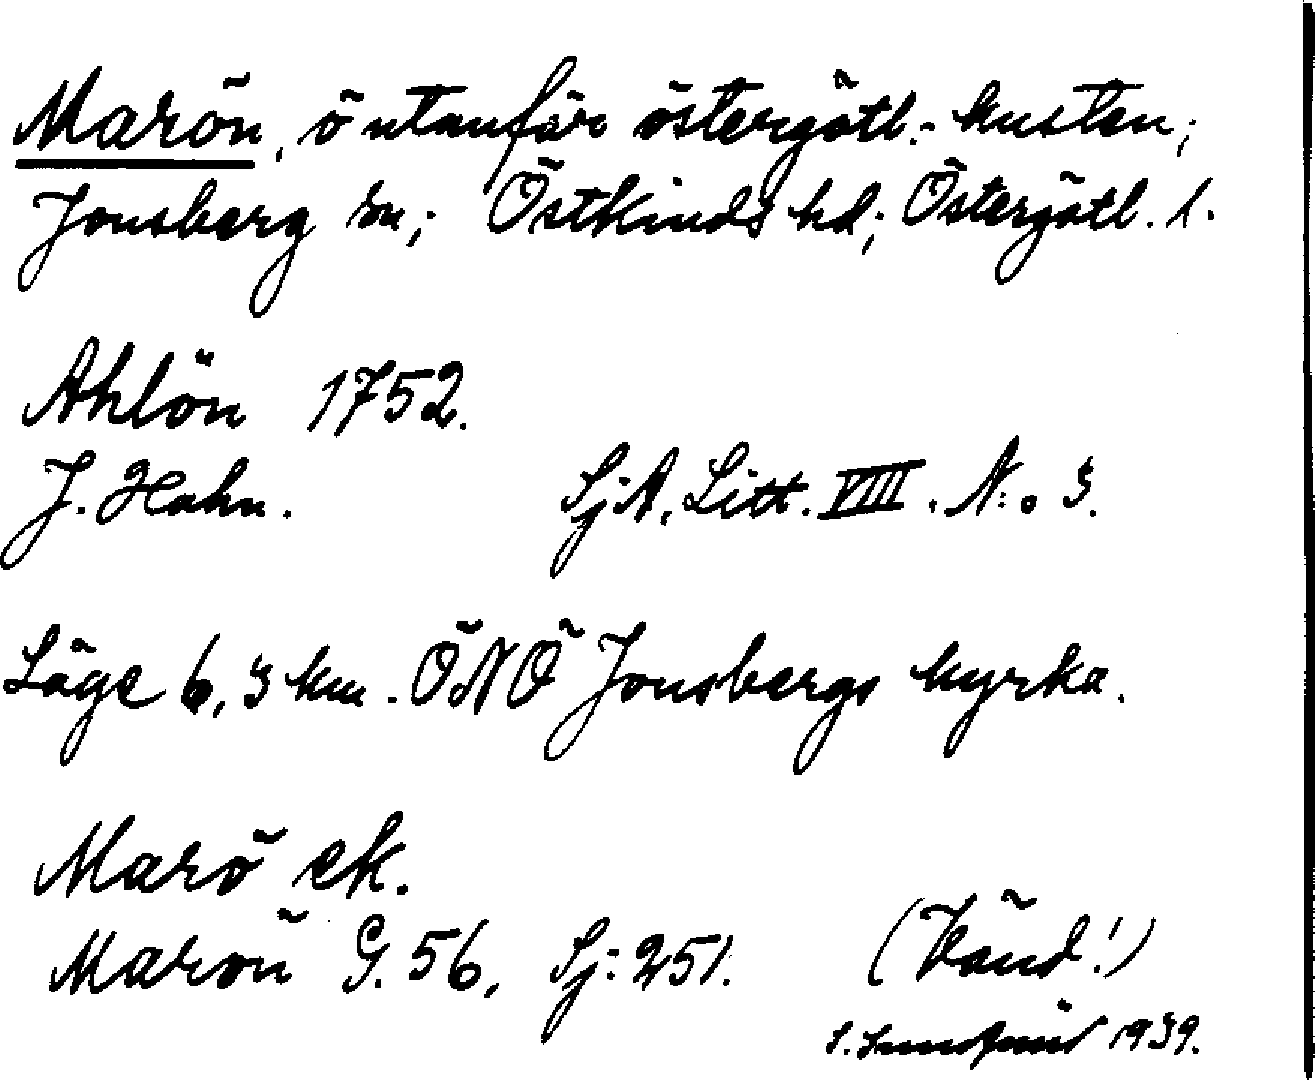 Marön, ö utanför östergötl.-kusten;
Jonsberg sn; Östkinds hd; Östergötl. l.
Ahlön 1752.
J. Hahn. SjA, Litt. VIII. N:o 3.
Läge 6,3 km. ÖNÖ Jonsbergs kyrka.
Marö ek.
Marön G. 56, Sj: 251. (Vänd!)
S. 1939.